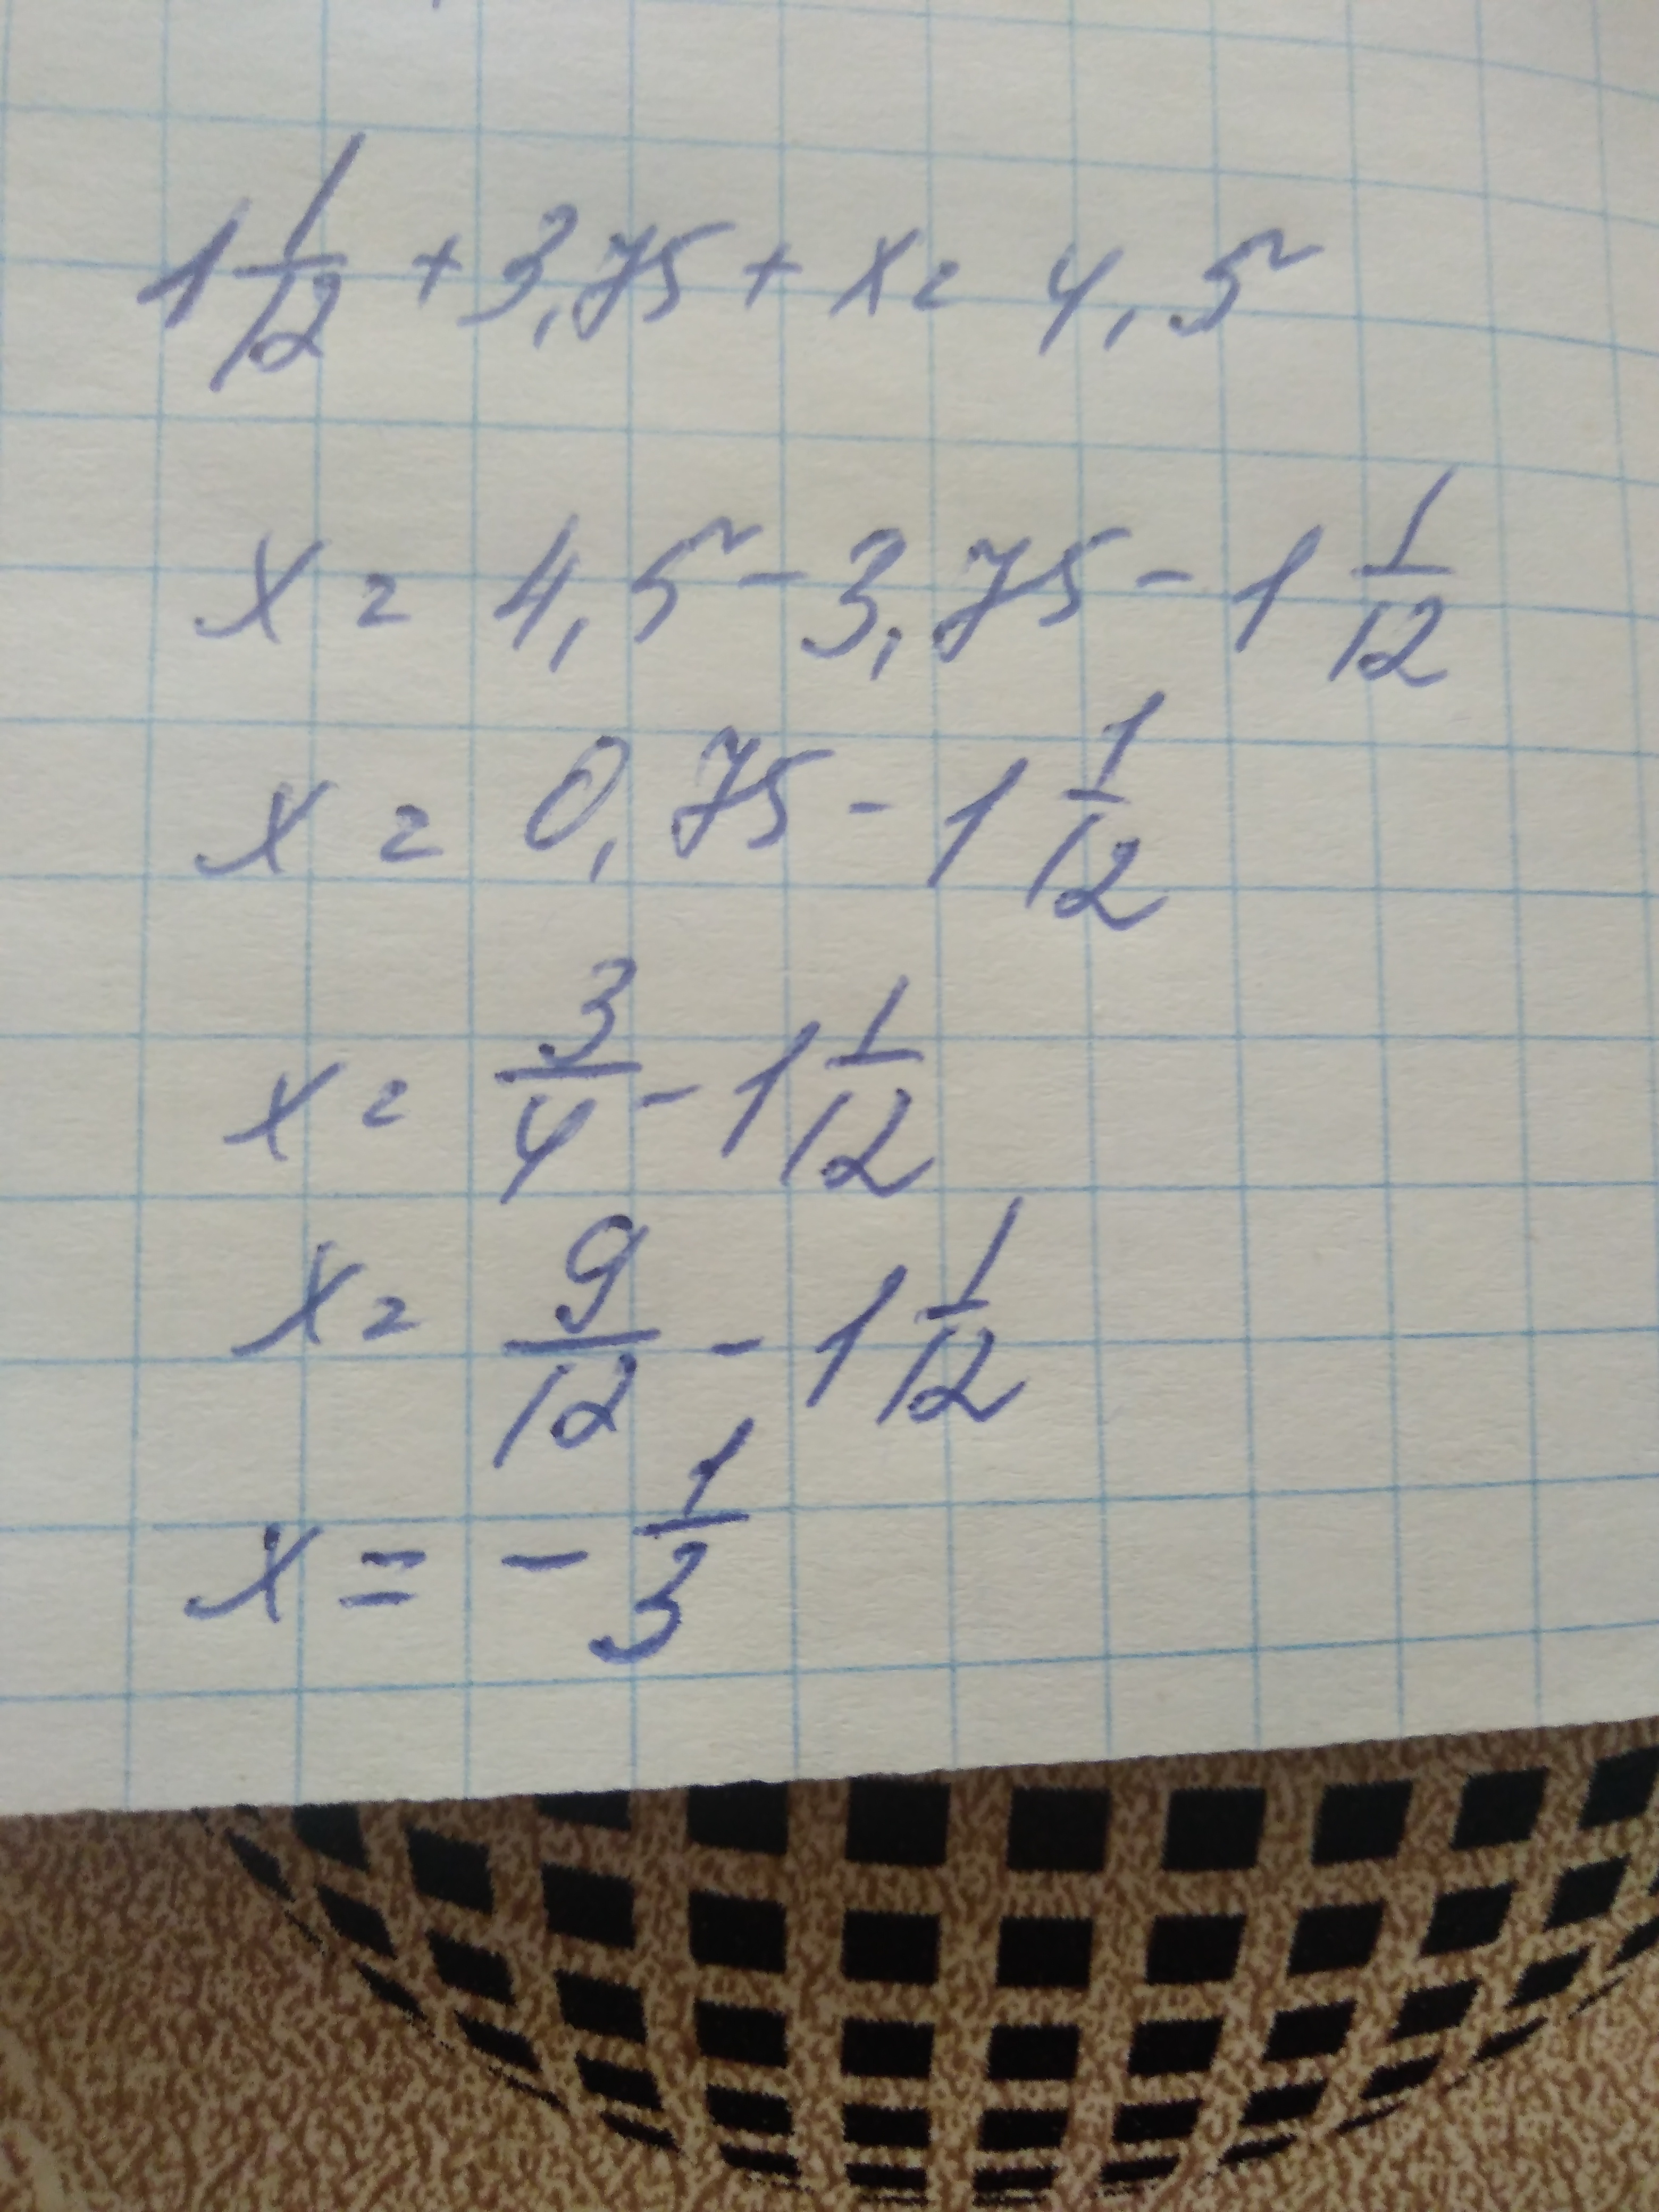 1 1/12 + 3,75 + x = 4,5
x = 4,5 - 3,75 - 1 1/12
x = 0,75 - 1 1/12
x = 3/4 - 1 1/12
x = 9/12 - 1 1/12
x = - 1/3